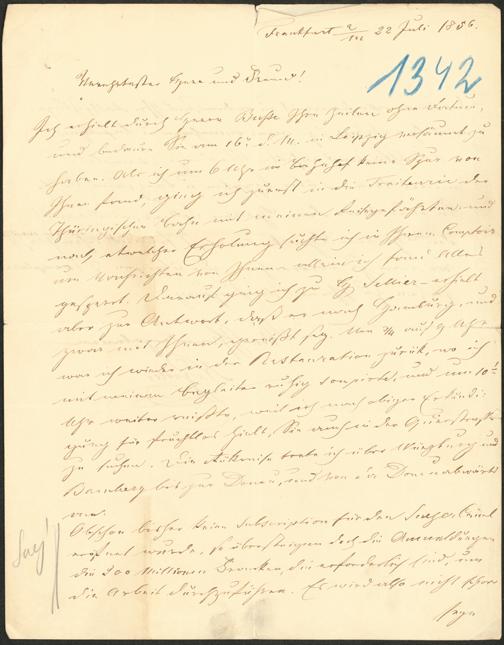 Frankfurt a/M 22 Juli 1856.
1342
Verehrtester Herr und Freund!
Ich erhielt durch Herrn Ihre Zeilen ohne Datum,
und bedaure Sie am 16. d. M. in Leipzig versäumt zu
haben. Als ich um 6 Uhr im Bahnhof keine Spur von
Ihnen fand, ging ich zuerst in die der
Thüringischer Bahn mit meinen Reisegefährten und
nach etwelcher Erholung suchte ich in Ihrem Comptoir
um Nachrichten von Ihnen allein ich fand Alles
gesperrt. Darauf ging ich zu H. Sellier erhielt
aber zur Antwort, daß er nach Hamburg, und
zwar mit Ihnen, gereißt sey. Um 3/4 auf 9 Uhr
war ich wieder in der Restauration zurük, wo ich
mit meinem Begleiter ruhig soupirte, und um 10 1/2
Uhr weiter reißte, weil ich nach obiger Erkundi-
gung für fruchtlos hielt, Sie auch in der Querstrasse
zu suchen. Die Rükreise trete ich über Würzburg und
Bamberg bis zur Donau, und von da Donauabwärts
an.
Obschon bisher keine Subscription für den Suez Canal
eröfnet wurde, so übersteigen doch die Anmeldungen
die 200 Millionen Franken, die erforderlich sind, um
die Arbeit durchzuführen. Es wird also nicht schon